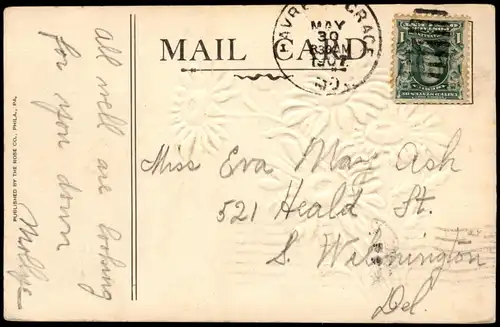 HAVRE DE GRACE
MAY
30
830AM
1907
MD.
MAIL CARD
1
Miss Eva May Ash
521 Heald St.
S. Wilmington
Del.
All well are looking
for you down
Mollye
PUBLISHED BY THE ROSE CO., PHILA., PA.